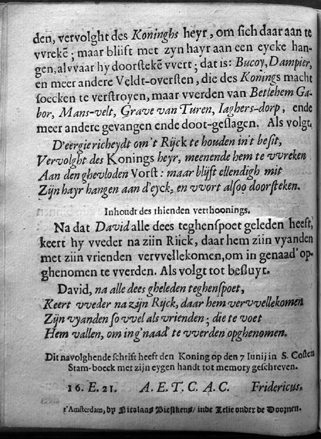 den, vervolght des Koninghs heyr, om sich daar aan te
vvrekē; maar blijft met zyn hayr aan een eycke han-
gen, alvvaar hy doorsteke̅ vvert; dat is: Bucoy, Dampier,
en meer andere Veldt-oversten, die des Konings macht
soecken te verstroyen, maar vverden van Betlehem Ga-
bor, Mans-velt, Grave van Turen, Iaghers-dorp, ende
meer andere gevangen ende doot-geslagen. Als volgt,
D'eergiericheydt om 't Rijck te houden in't besit,
Vervolght des Konings heyr, meenende hem te vvreken
Aan den ghevloden Vorst: maar blijft ellendigh mit
Zijn hayr hangen aan d'eyck, en vvort alsoo doorsteken.
Inhoudt des thienden verthoonings.
Na dat David alle dees teghenspoet geleden heeft,
keert hy vveder na zijn Rijck, daar hem zijn vyanden
met zijn vrienden vervvellekomen, om in genaad' op-
ghenomen te vverden. Als volgt tot besluyt.
David, na alle dees gheleden teghenspoet,
Keert vveder na zijn Rijck, daar hem vervvellekomen
Zijn vyanden so vvel als vrienden; die te voet
Hem vallen, om in g'naad' te vverden opghenomen.
Dit navolghende schrift heeft den Koning op den 7 Iunij in S. Costen
Stam-boeck met zijn eygen handt tot memory geschreven.
16. E. 21. A. E. T. C. A. C. Fridericus.
t'Amsterdam, by Nicolaas Biestkens, inde Lelie onder de Doornen.